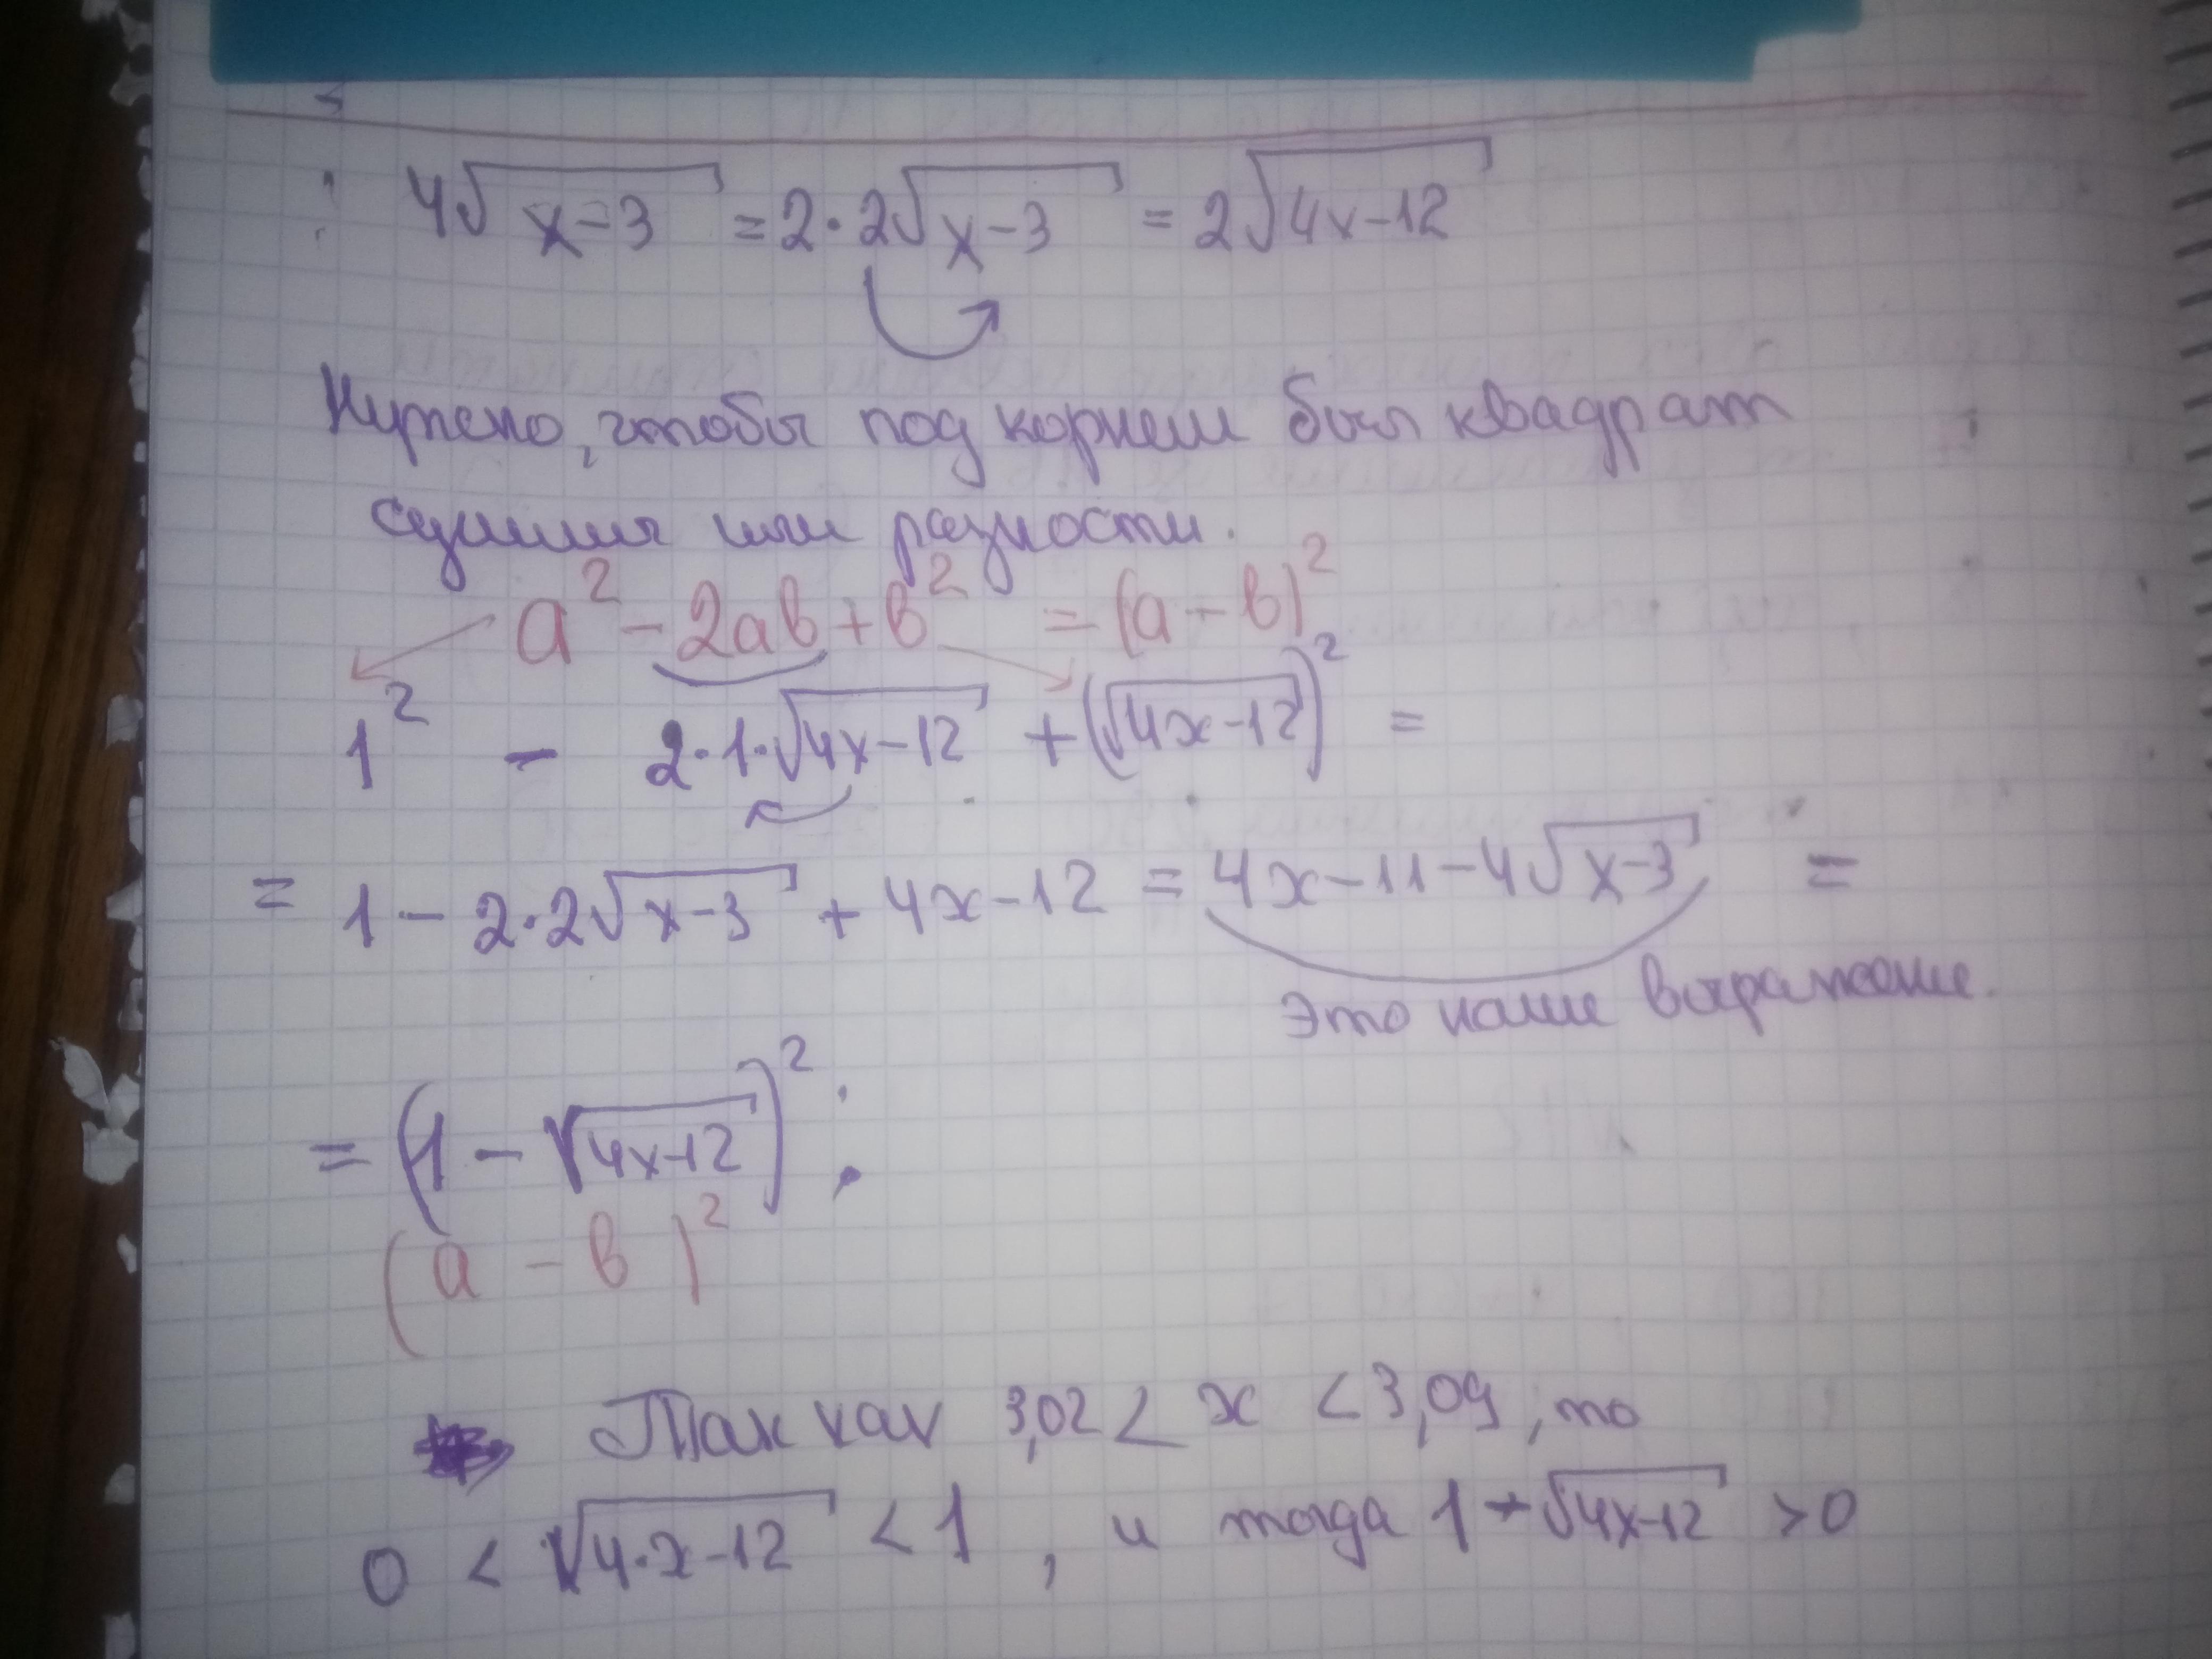 4√(x-3) = 2·2√(x-3) = 2√(4x-12)
Нужно, чтобы под корнем был квадрат
суммы или разности.
a² - 2ab + b² = (a - b)²
1² - 2·1·√(4x-12) + (√(4x-12))² =
= 1 - 2·2√(x-3) + 4x-12 = 4x-11-4√(x-3) =
Это наше выражение.
= (1 - √(4x-12))² ;
(a - b)²
Так как 3,02 < x < 3,09, то
0 < √(4·x-12) < 1, и тогда 1 - √(4x-12) > 0